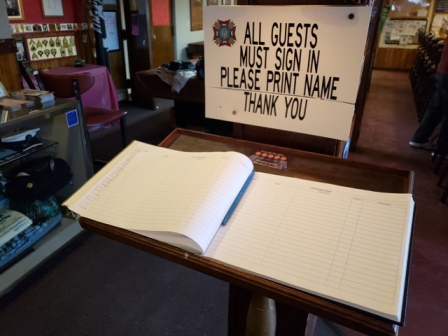 ALL GUESTS
MUST SIGN IN
PLEASE PRINT NAME
THANK YOU